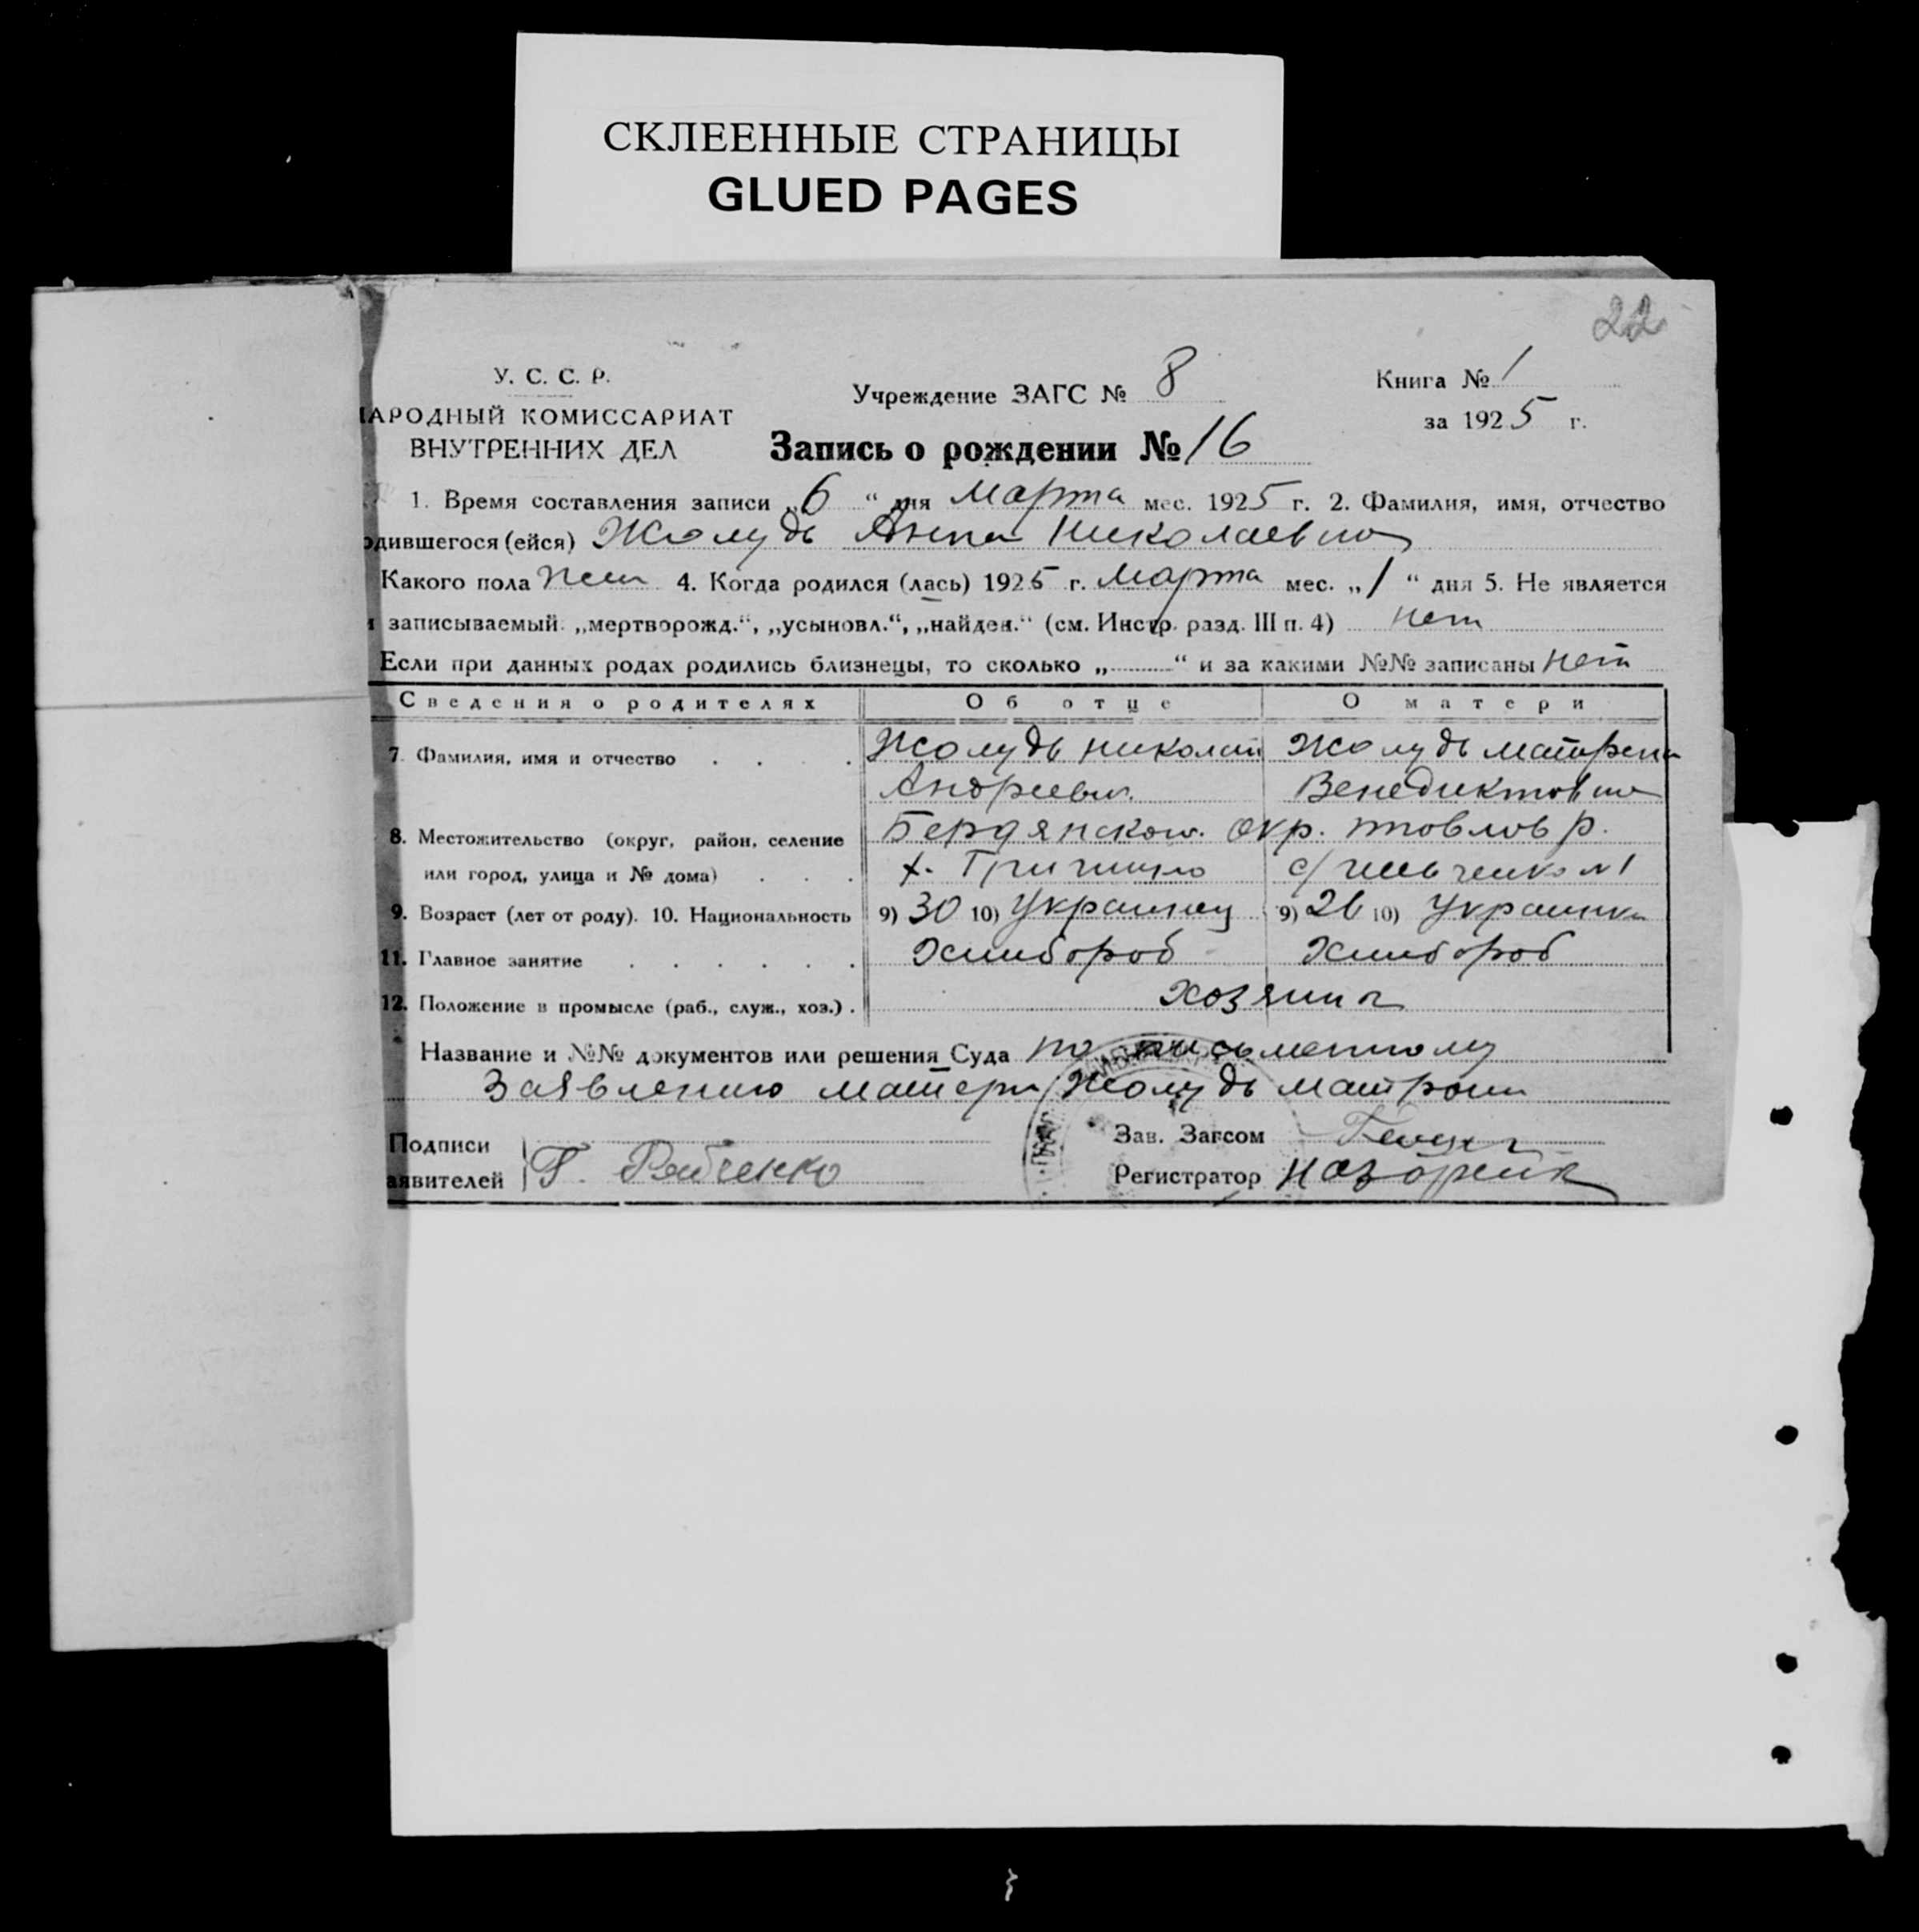 СКЛЕЕННЫЕ СТРАНИЦЫ
GLUED PAGES
22
У. С. С. Р.
Учреждение ЗАГС № 8
Книга № 1
АРОДНЫЙ КОМИССАРИАТ
за 1925 г.
ВНУТРЕННИХ ДЕЛ
Запись о рождении № 16
1. Время составления записи „6“ дня Марта мес. 1925 г. 2. Фамилия, имя, отчество
одившегося (ейся) Жолудь Анна Николаевна
Какого пола жен 4. Когда родился (лась) 1925 г. Марта мес. „1“ дня 5. Не является
и записываемый: „мертворожд.“, „усыновл.“, „найден.“ (см. Инстр. разд. III п. 4) нет
Если при данных родах родились близнецы, то сколько „.........“ и за какими №№ записаны нет
Сведения о родителях Об отце О матери
7. Фамилия, имя и отчество . . . . Жолудь Николай Жолудь Матрена
Андреевич Венедиктовна
8. Местожительство (округ, район, селение Бердянской окр. Повлов р.
или город, улица и № дома) . . . х. Гришино с/
9. Возраст (лет от роду). 10. Национальность 9) 30 10) Украинец 9) 26 10) Украинка
11. Главное занятие . . . . . . Хлибороб Хлибороб
12. Положение в промысле (раб., служ., хоз.) . хозяин
Название и №№ документов или решения Суда по письменному
Заявлению матери Жолудь Матрони
Подписи
Зав. Загсом
аявителей Г. Рябченко
Регистратор